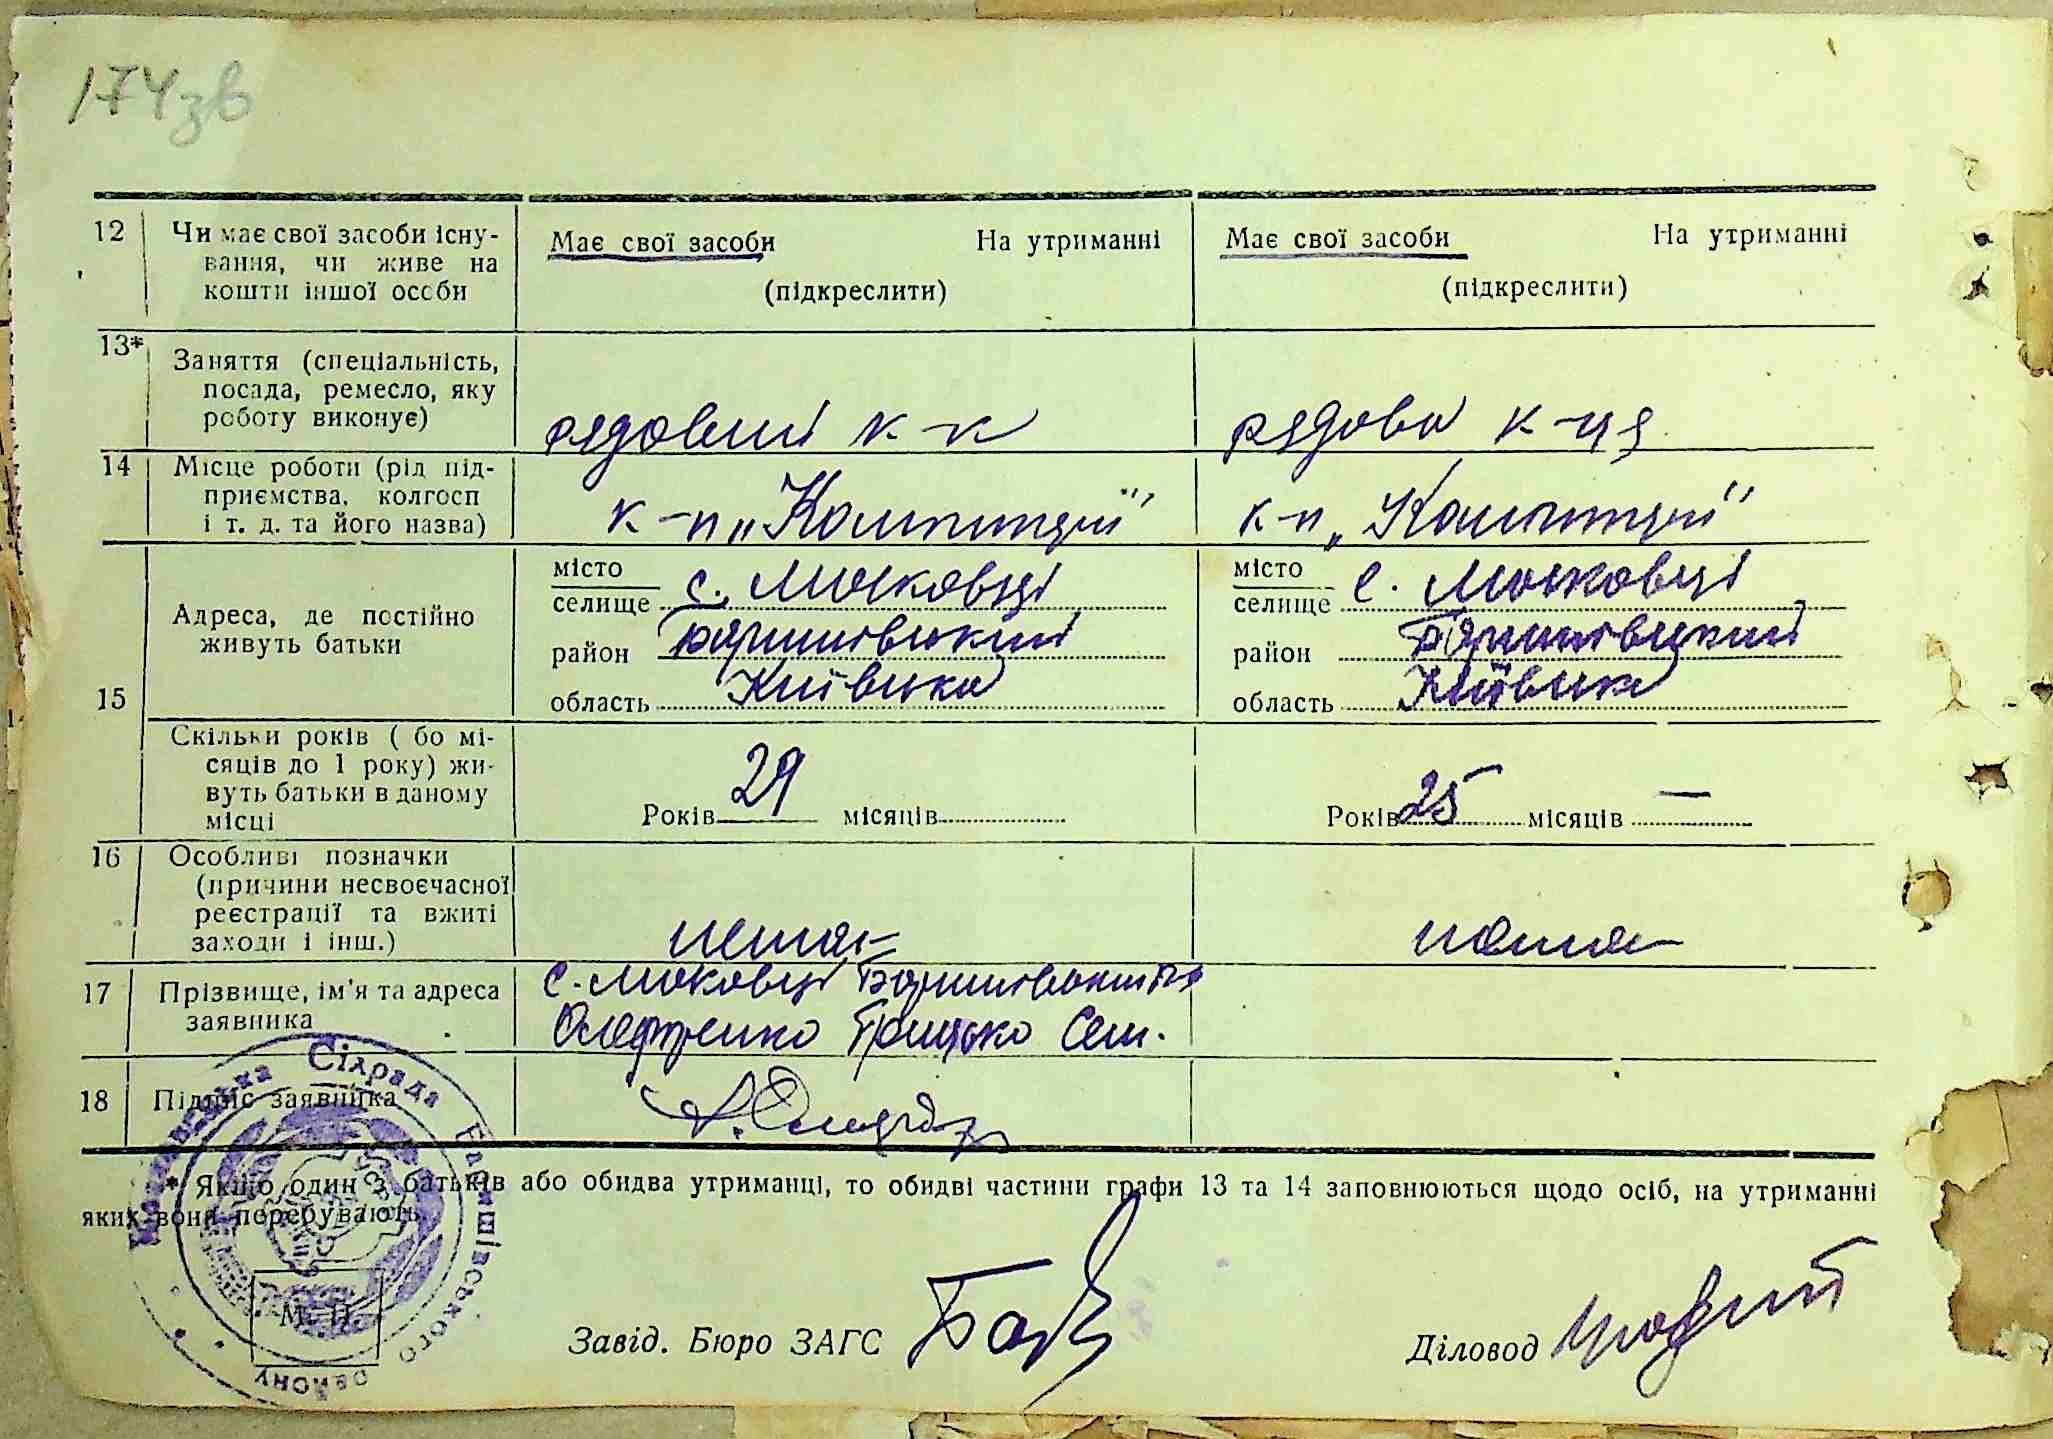 174зв
12 Чи має свої засоби існу-
вання, чи живе на
кошти іншої особи
Має свої засоби На утриманні
(підкреслити)
Має свої засоби На утриманні
(підкреслити)
13* Заняття (спеціальність,
посада, ремесло, яку
роботу виконує)
рядовий к-к
рядова к-ця
14 Місце роботи (рід під-
приємства, колгосп
і т. д. та його назва)
к-п „Комінтерн"
к-п „Комінтерн"
15 Адреса, де постійно
живуть батьки
місто
селище с. Московці
район Баришівський
область Київська
місто
селище с. Московці
район Баришівський
область Київська
Скільки років ( бо мі-
сяців до 1 року) жи-
вуть батьки в даному
місці
Років 29 місяців
Років 25 місяців —
16 Особливі позначки
(причини несвоєчасної
реєстрації та вжиті
заходи і інш.)
нема
нема
17 Прізвище, ім'я та адреса
заявника
с. Московці
Грицько Сем.
18 Підпис заявника
* Якщо один з батьків або обидва утриманці, то обидві частини графи 13 та 14 заповнюються щодо осіб, на утриманні
яких вони перебувають
Сілрада
району
М. П.
Завід. Бюро ЗАГС
Діловод